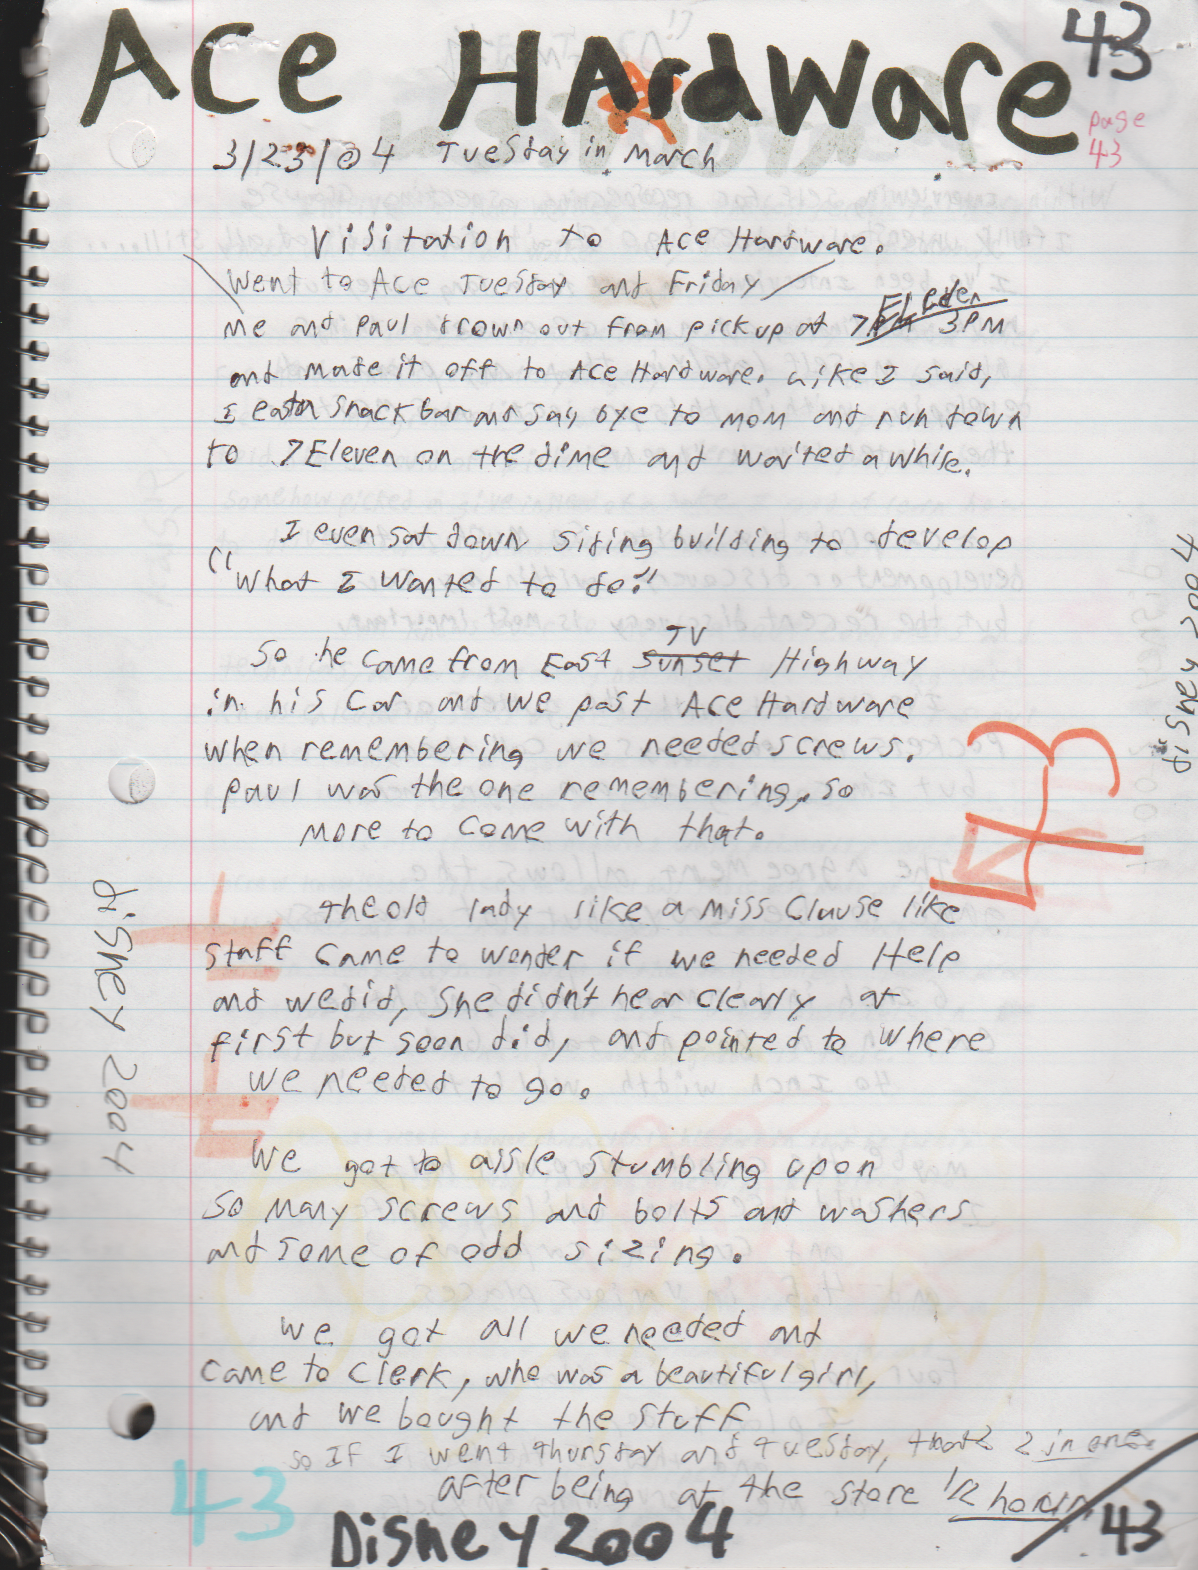 Ace HArdWare
43
page
43
3/23/04 Tuesday in March
Visitation to Ace Hardware.
Went to Ace Tuesday and Friday
Eleven
me and Paul drown out from pickup at 7PM 3PM
and made it off to Ace Hardware. Like I said,
I eatn snack bar and say bye to mom and run down
to 7Eleven on the dime and waited awhile.
I even sat down siding building to develop
"What I wanted to do."
TV
So he came from East Sunset Highway
in his car and we past Ace Hardware
when remembering we needed screws.
Paul was the one remembering, so
more to come with that.
The old lady like a Miss Clause like
staff came to wonder if we needed Help
and we did, She didn't hear clearly at
first but soon did, and pointed to where
we needed to go.
We got to aisle stumbling upon
so many screws and bolts and washers
and some of odd sizing.
We got all we needed and
came to clerk, who was a beautiful girl,
and we bought the stuff
so If I went Thursday and Tuesday, that 2 in one.
after being at the store 1/2 hour
43
Disney 2004
43
Disney 2004
disney 2004
43